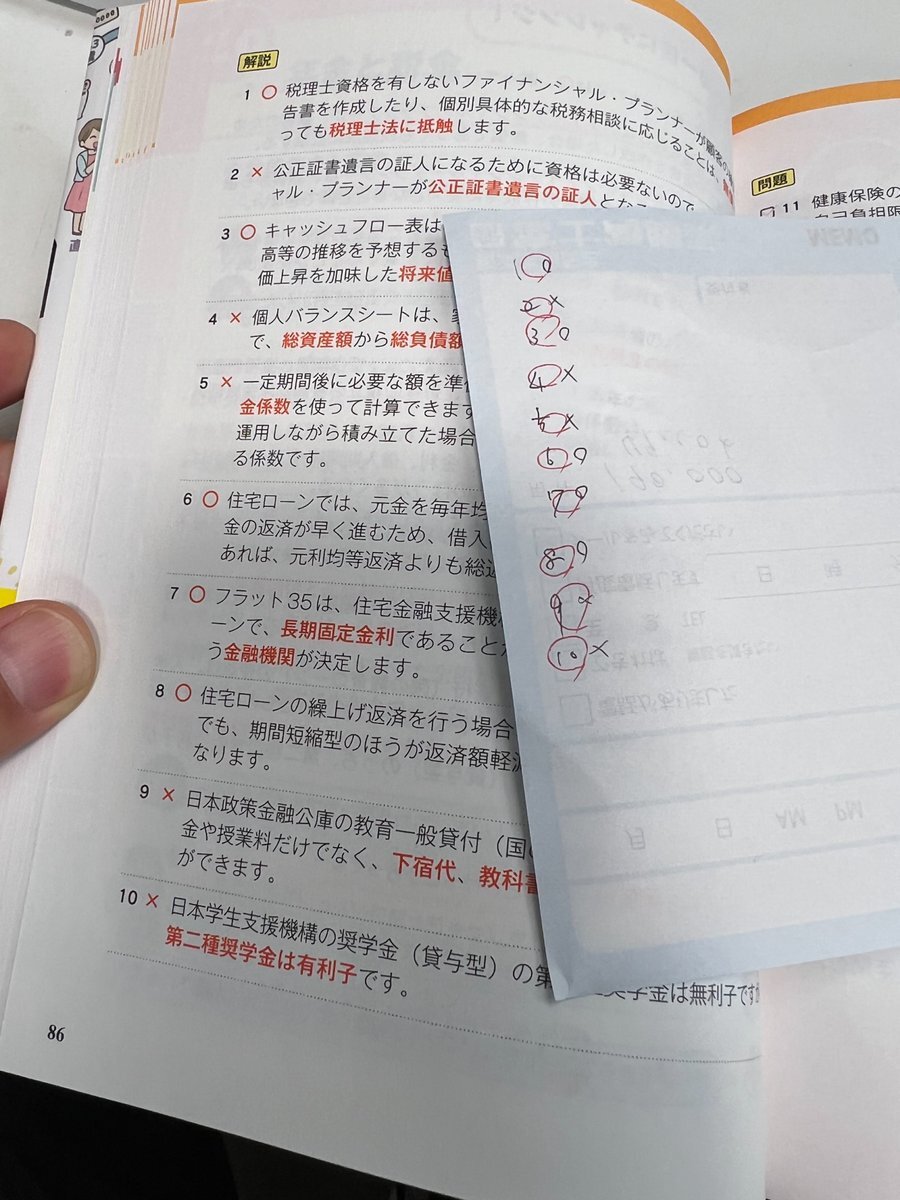 解説
1 ○ 税理士資格を有しないファイナンシャル・プランナーが顧客の
告書を作成したり、個別具体的な税務相談に応じることは、
っても税理士法に抵触します。
2 × 公正証書遺言の証人になるために資格は必要ないので
ャル・プランナーが公正証書遺言の証人とな
3 ○ キャッシュフロー表は
高等の推移を予想するも
価上昇を加味した将来値
4 × 個人バランスシートは、
で、総資産額から総負債額
5 × 一定期間後に必要な額を準
金係数を使って計算できます
運用しながら積み立てた場合
る係数です。
6 ○ 住宅ローンでは、元金を毎年均
金の返済が早く進むため、借入
あれば、元利均等返済よりも総返
7 ○ フラット35は、住宅金融支援機
ーンで、長期固定金利であること
う金融機関が決定します。
8 ○ 住宅ローンの繰上げ返済を行う場合
でも、期間短縮型のほうが返済額軽減
なります。
9 × 日本政策金融公庫の教育一般貸付（国
金や授業料だけでなく、下宿代、教科書
ができます。
10 × 日本学生支援機構の奨学金（貸与型）の第 奨学金は無利子ですが
第二種奨学金は有利子です。
86
問題
11 健康保険の
自己負担限
MEMO
1 ○
2 ×
3 ○
4 ×
5 ×
6 ○
7 ○
8 ○
9 ×
10 ×